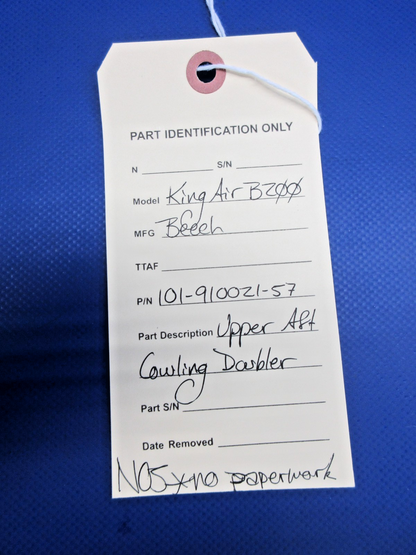 PART IDENTIFICATION ONLY
N S/N
Model King Air B200
MFG Beech
TTAF
P/N 101-910021-57
Part Description Upper Aft
Cowling Doubler
Part S/N
Date Removed
NOS *no paperwork